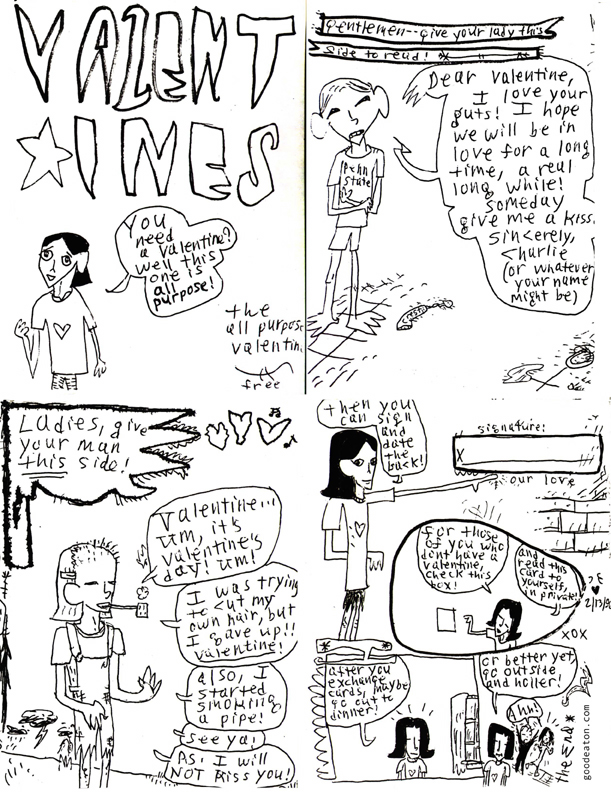 VALENT
INES
You
need
a valentine?
well this
one is
all
purpose!
the
all purpose
valentin
free
Gentlemen--give your lady this
side to read!
Penn
State
Dear valentine,
I love your
guts! I hope
we will be in
love for a long
time, a real
long while!
Someday
give me a kiss.
Sincerely,
Charlie
(or whatever
your name
might be)
Ladies, give
your man
this side!
Valentine...
um, it's
valentine's
day! um!
I was trying
to cut my
own hair, but
I gave up!!
valentine!
also, I
started
smoking
a pipe!
see ya!
P.S. I will
NOT kiss you!
then you
can sign
and
date
the
back!
signature:
X
our love
for those
of you who
dont have a
valentine,
check this
box!
and
read this
card to
yourself,
in private!
D.E
2/13/02
XOX
after you
exchange
cards, maybe
go out to
dinner!
or better yet,
go outside,
and holler!
Ahh!
the end
goodeaton.com